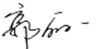 郭丽一